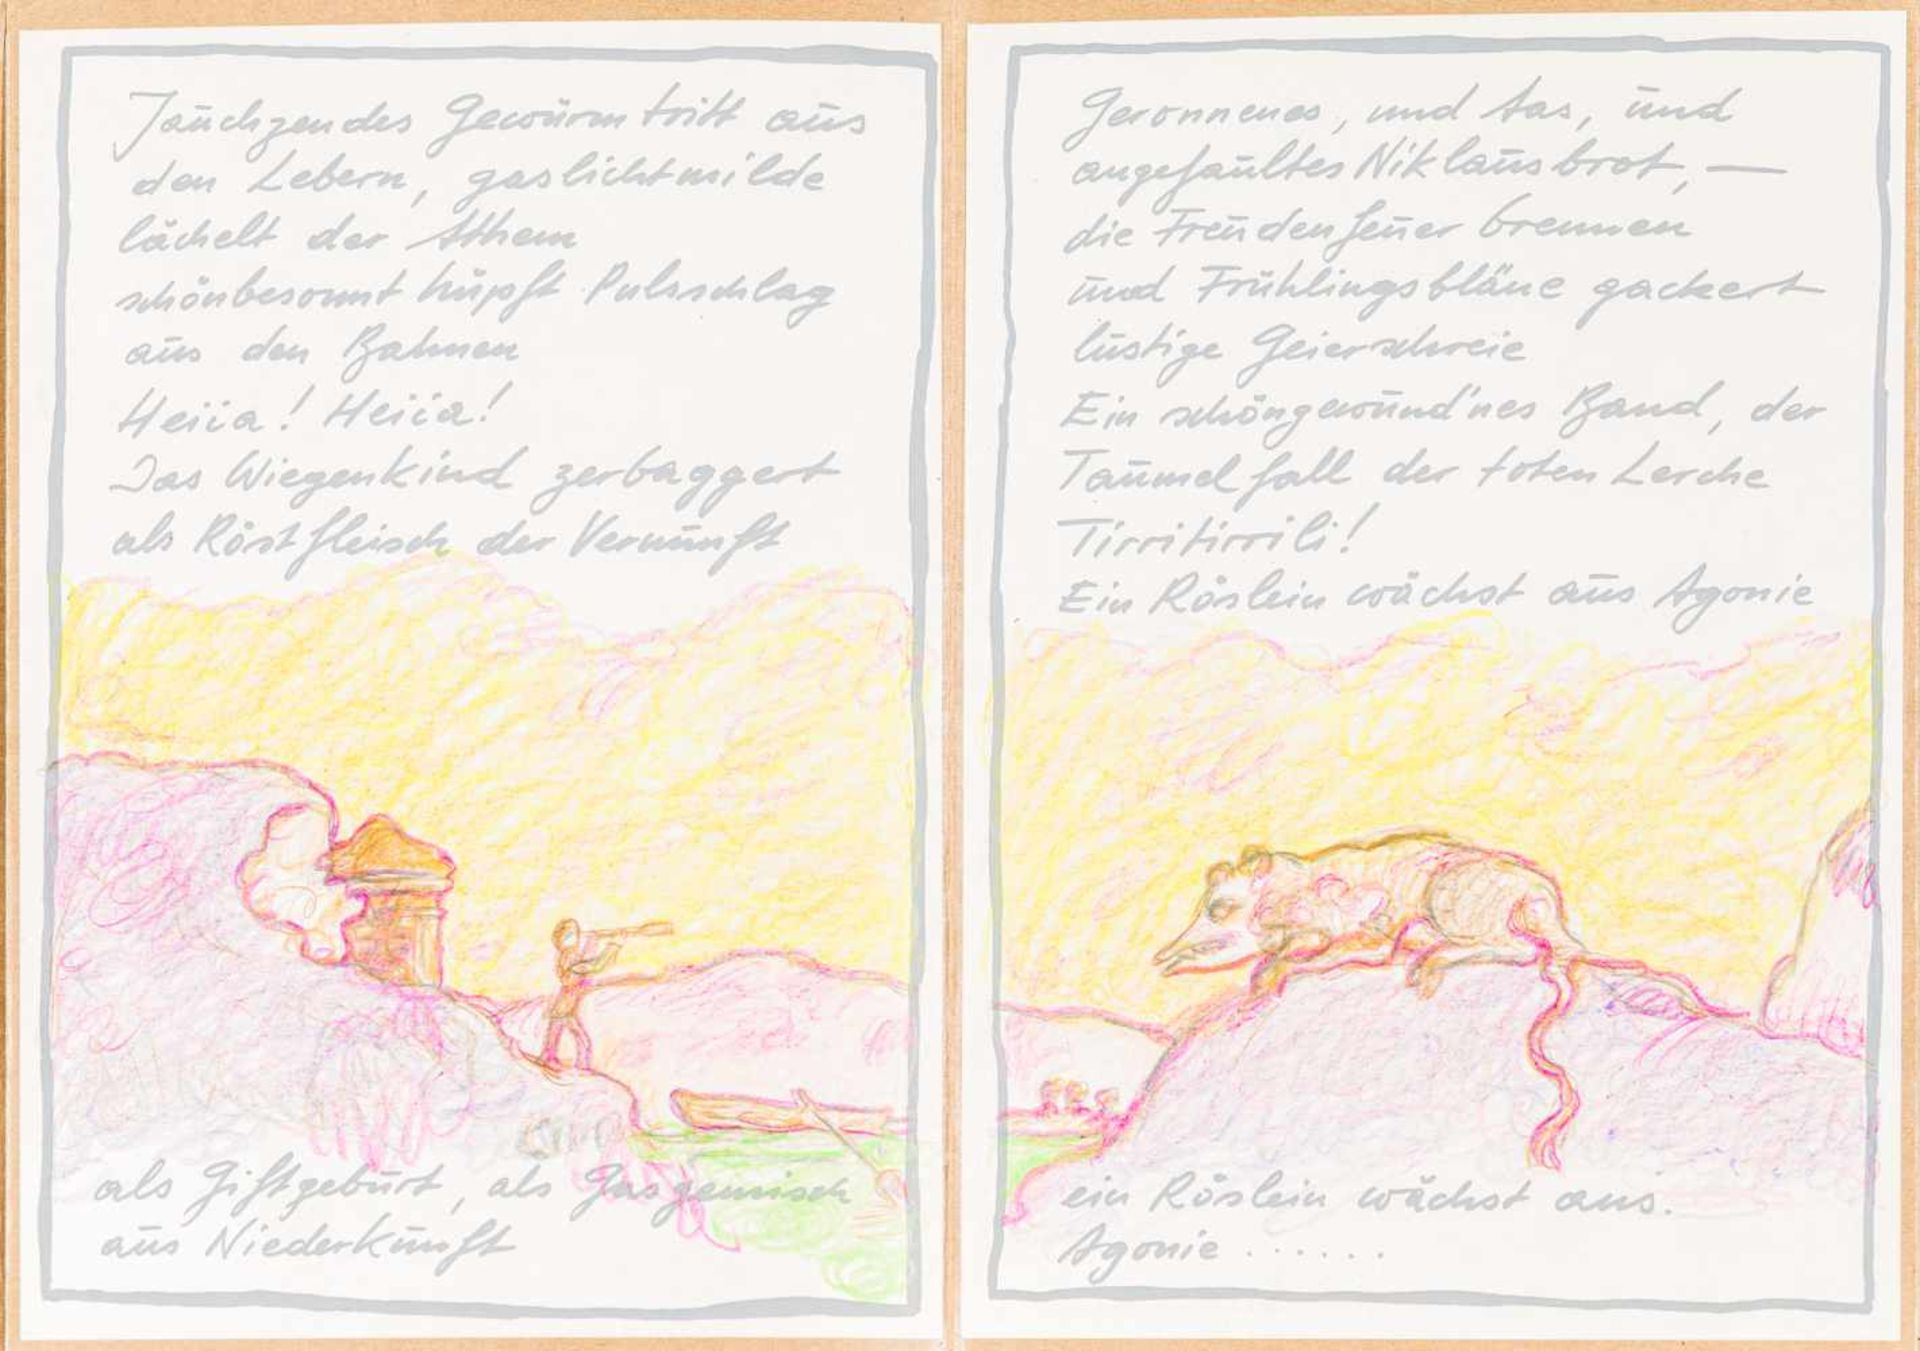 Jauchzendes Gewürm tritt aus
den Lebern, gaslichtmilde
lächelt der Athem
schönbesonnt hüpft Pulsschlag
aus den Bahnen
Heiia! Heiia!
Das Wiegenkind zerbaggert
als Röstfleisch der Vernunft
als Giftgeburt, als Gasgemisch
aus Niederkunft
Geronnenes, und Aas, und
angefaultes Niklausbrot, —
die Freudenfeuer brennen
und Frühlingsbläue gackert
lustige Geierschreie
Ein schöngewund'nes Band, der
Taumelfall der toten Lerche
Tirritirrili!
Ein Röslein wächst aus Agonie
ein Röslein wächst aus.
Agonie ......